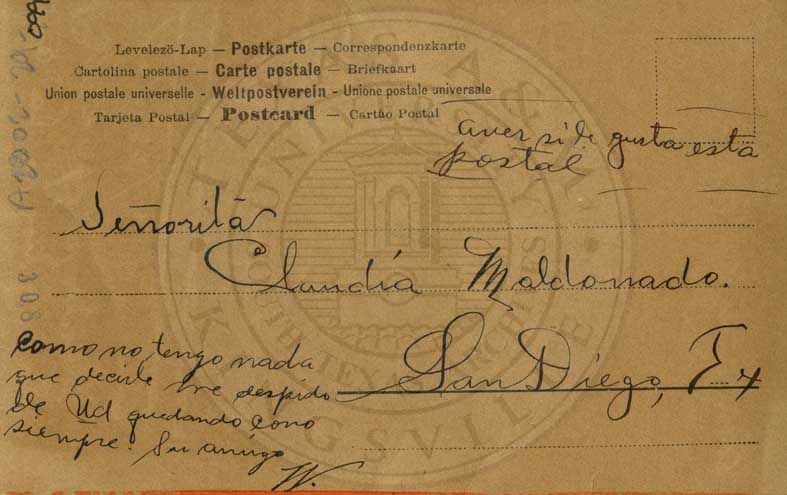 Levelező-Lap — Postkarte — Correspondenzkarte
Cartolina postale — Carte postale — Briefkaart
Union postale universelle - Weltpostverein - Unione postale universale
Tarjeta Postal — Postcard — Cartão Postal
aver si le gusta esta
postal
Señorita
Claudia Maldonado.
San Diego, Tx
como no, tengo nada
que decirle me despido
de Ud quedando como
siempre. Su amigo
W.
308